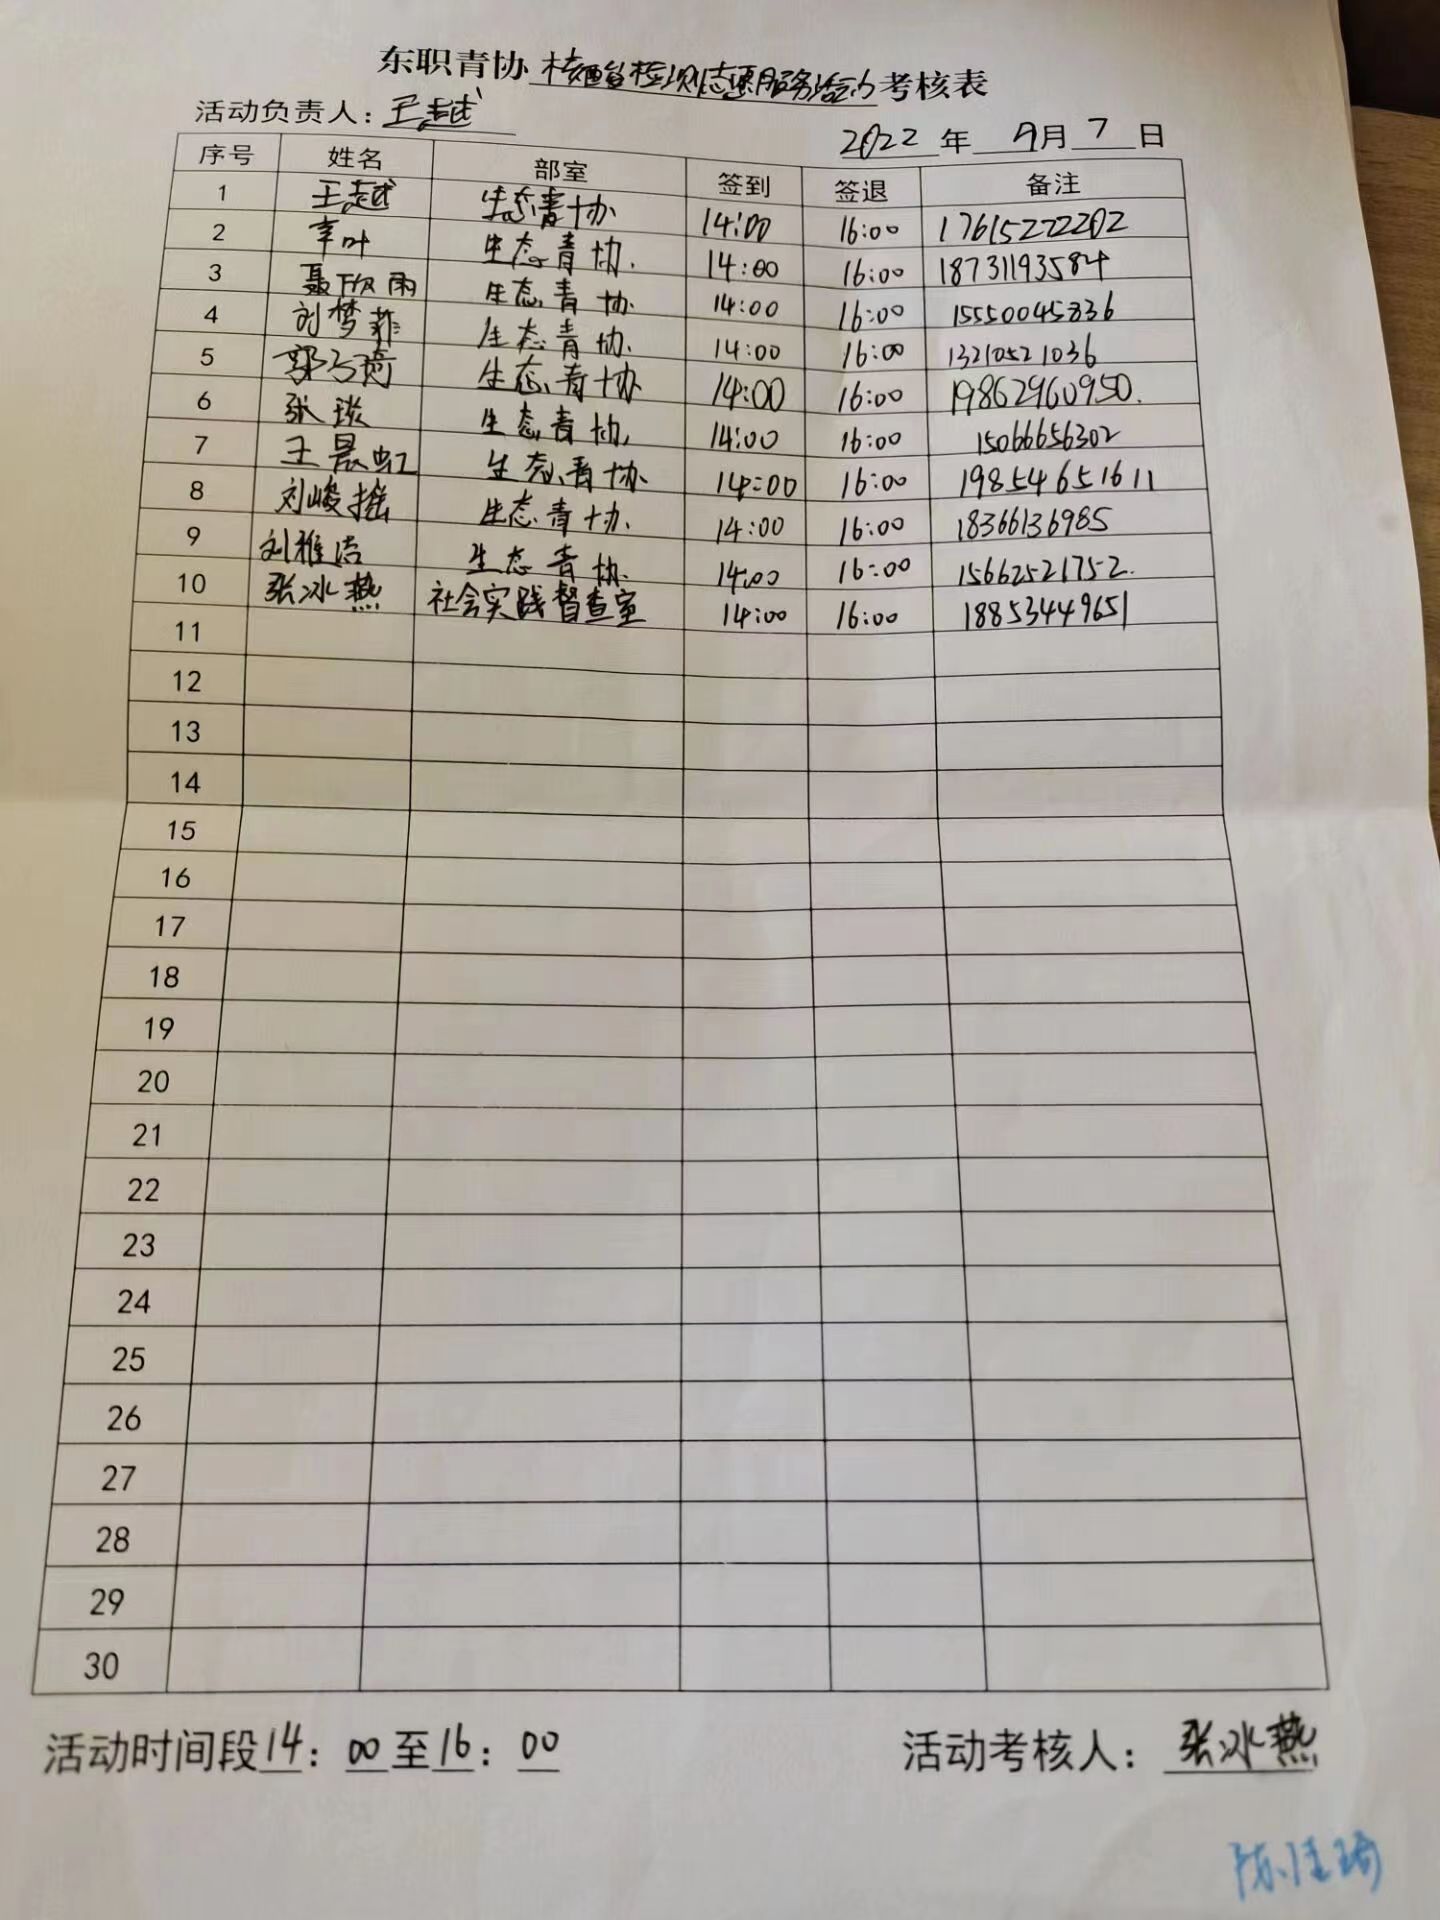 东职青协核酸检测志愿服务活动考核表
活动负责人：王越
2022年9月7日
序号 姓名 部室 签到 签退 备注
1 王越 生态青协 14:00 16:00 17615272202
2 李叶 生态青协. 14:00 16:00 18731193584
3 聂欣雨 生态青协. 14:00 16:00 15550045836
4 刘梦菲 生态青协. 14:00 16:00 13210521036
5 郭子琦 生态青协 14:00 16:00 19862960950.
6 张琰 生态青协, 14:00 16:00 15066656302
7 王晨虹 生态青协. 14:00 16:00 19854651611
8 刘峻摇 生态青协. 14:00 16:00 18366136985
9 刘雅洁 生态青协. 14:00 16:00 15662521752.
10 张冰燕 社会实践督查室 14:00 16:00 18853449651
11
12
13
14
15
16
17
18
19
20
21
22
23
24
25
26
27
28
29
30
活动时间段14：00至16：00 活动考核人：张冰燕
陈佳琦